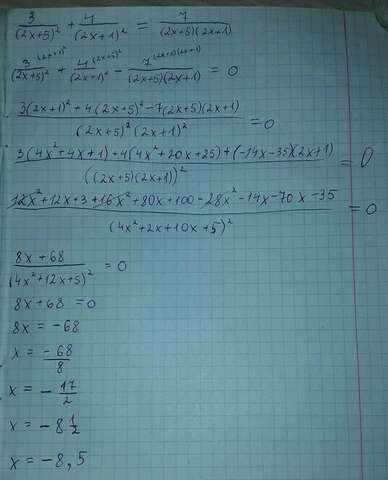 3/(2x+5)² + 4/(2x+1)² = 7/((2x+5)(2x+1))
3^(2x+1)²/(2x+5)² + 4^(2x+5)²/(2x+1)² - 7^(2x+5)(2x+1)/((2x+5)(2x+1)) = 0
3(2x+1)² + 4(2x+5)² - 7(2x+5)(2x+1)/((2x+5)²(2x+1)²) = 0
3(4x²+4x+1)+4(4x²+20x+25)+(-14x-35)(2x+1)/((2x+5)(2x+1))² = 0
12x²+12x+3+16x²+80x+100-28x²-14x-70x-35/(4x²+2x+10x+5)² = 0
8x+68/(4x²+12x+5)² = 0
8x+68 = 0
8x = -68
x = -68/8
x = - 17/2
x = - 8 1/2
x = -8,5